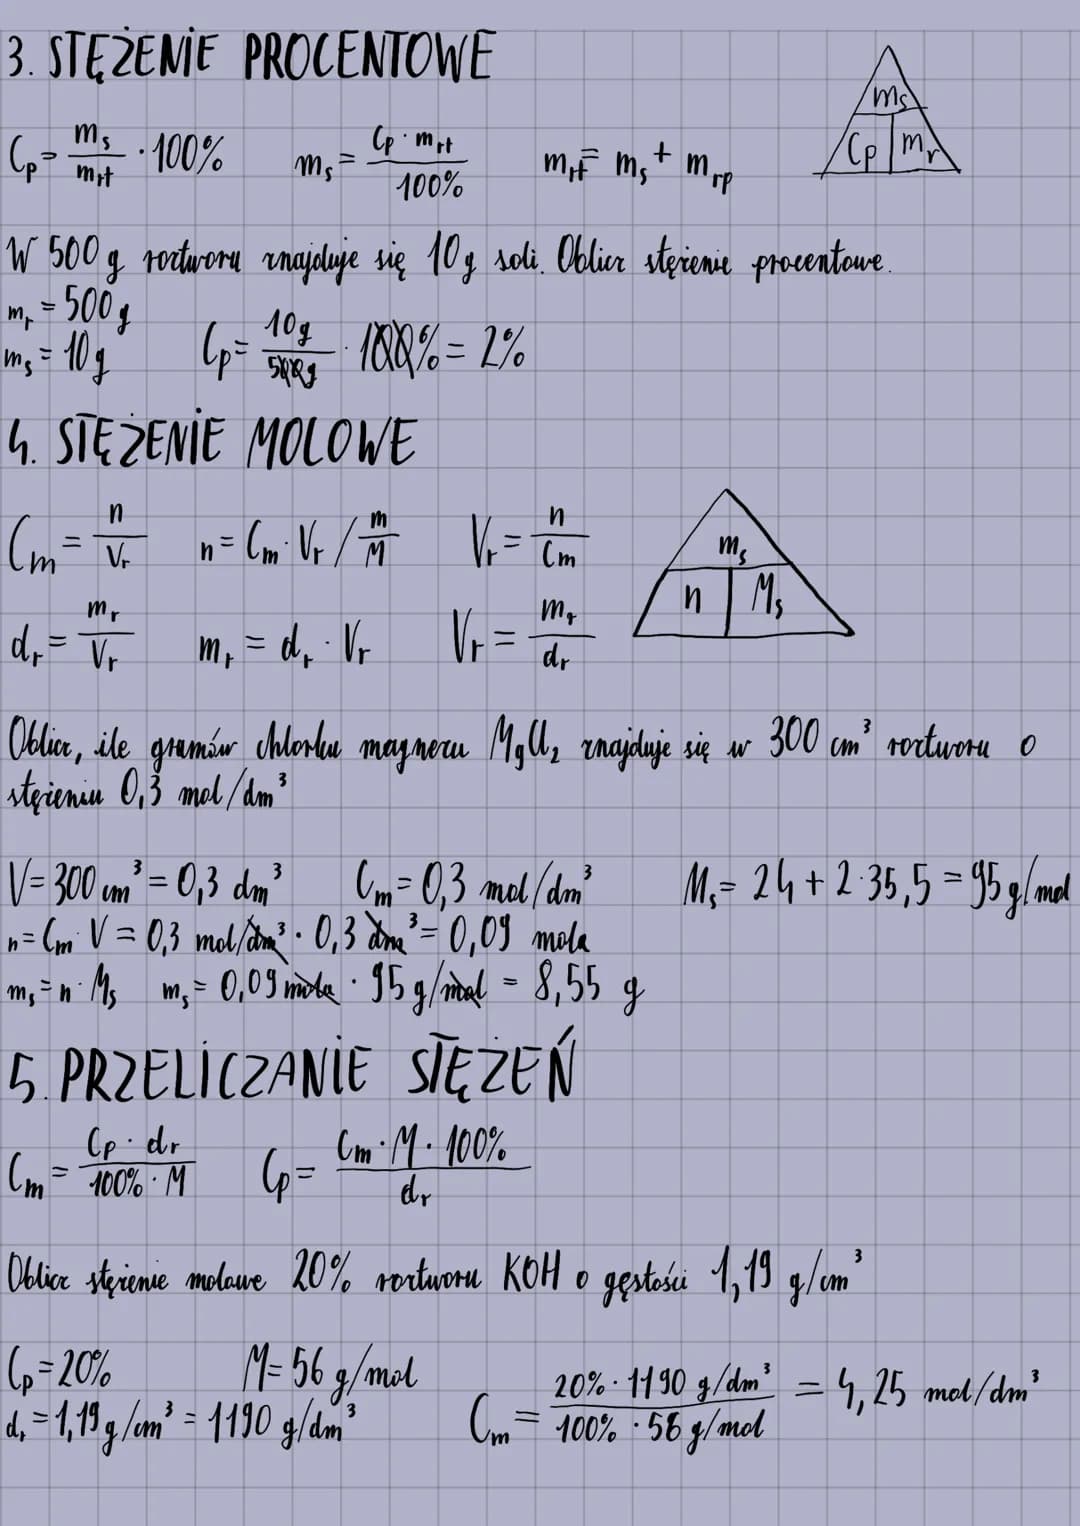 3. STĘŻENIE PROCENTOWE
Cp = ms/mrt · 100%   ms = Cp · mrt / 100%   mrt = ms + mrp
ms
Cp mr
W 500 g roztworu znajduje się 10g soli. Oblicz stężenie procentowe.
mr = 500 g
ms = 10 g   Cp = 10g/500g · 100% = 2%
4. STĘŻENIE MOLOWE
Cm = n/Vr   n = Cm · Vr / m/M   Vr = n/Cm
ms
n Ms
dr = mr/Vr   mr = dr · Vr   Vr = mr/dr
Oblicz, ile gramów chlorku magnezu MgCl₂ znajduje się w 300 cm³ roztworu o
stężeniu 0,3 mol/dm³
V = 300 cm³ = 0,3 dm³   Cm = 0,3 mol/dm³   Ms = 24 + 2·35,5 = 95 g/mol
n = Cm · V = 0,3 mol/dm³ · 0,3 dm³ = 0,09 mola
ms = n · Ms   ms = 0,09 mola · 95 g/mol = 8,55 g
5. PRZELICZANIE STĘŻEŃ
Cm = Cp · dr / 100% · M   Cp = Cm · M · 100% / dr
Oblicz stężenie molowe 20% roztworu KOH o gęstości 1,19 g/cm³
Cp = 20%   M = 56 g/mol
dr = 1,19 g/cm³ = 1190 g/dm³   Cm = 20% · 1190 g/dm³ / 100% · 56 g/mol = 4,25 mol/dm³